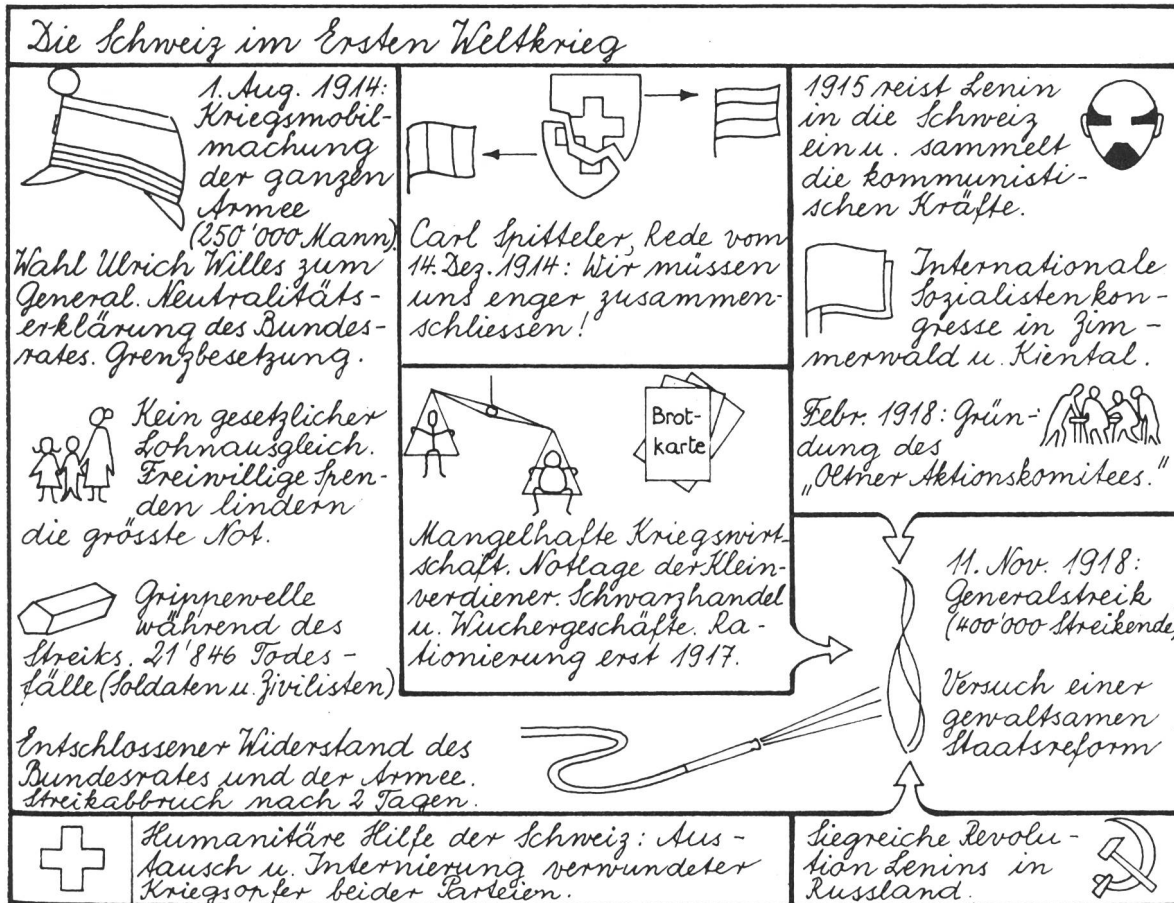 Die Schweiz im Ersten Weltkrieg
1. Aug. 1914:
Kriegsmobil-
machung
der ganzen
Armee
(250'000 Mann).
Wahl Ulrich Willes zum
General. Neutralitäts-
erklärung des Bundes-
rates. Grenzbesetzung.
Kein gesetzlicher
Lohnausgleich.
Freiwillige Spen-
den lindern
die grösste Not.
Grippewelle
während des
Streiks. 21'846 Todes-
fälle (Soldaten u. Zivilisten)
Entschlossener Widerstand des
Bundesrates und der Armee.
Streikabbruch nach 2 Tagen.
Carl Spitteler, Rede vom
14. Dez. 1914: Wir müssen
uns enger zusammen-
schliessen!
Brot-
karte
Mangelhafte Kriegswirt-
schaft. Notlage der Klein-
verdiener. Schwarzhandel
u. Wuchergeschäfte. Ra-
tionierung erst 1917.
1915 reist Lenin
in die Schweiz
ein u. sammelt
die kommunisti-
schen Kräfte.
Internationale
Sozialistenkon-
gresse in Zim-
merwald u. Kiental.
Febr. 1918: Grün-
dung des
„Oltner Aktionskomitees."
11. Nov. 1918:
Generalstreik
(400'000 Streikende)
Versuch einer
gewaltsamen
Staatsreform
Humanitäre Hilfe der Schweiz: Aus-
tausch u. Internierung verwundeter
Kriegsopfer beider Parteien.
Siegreiche Revolu-
tion Lenins in
Russland.